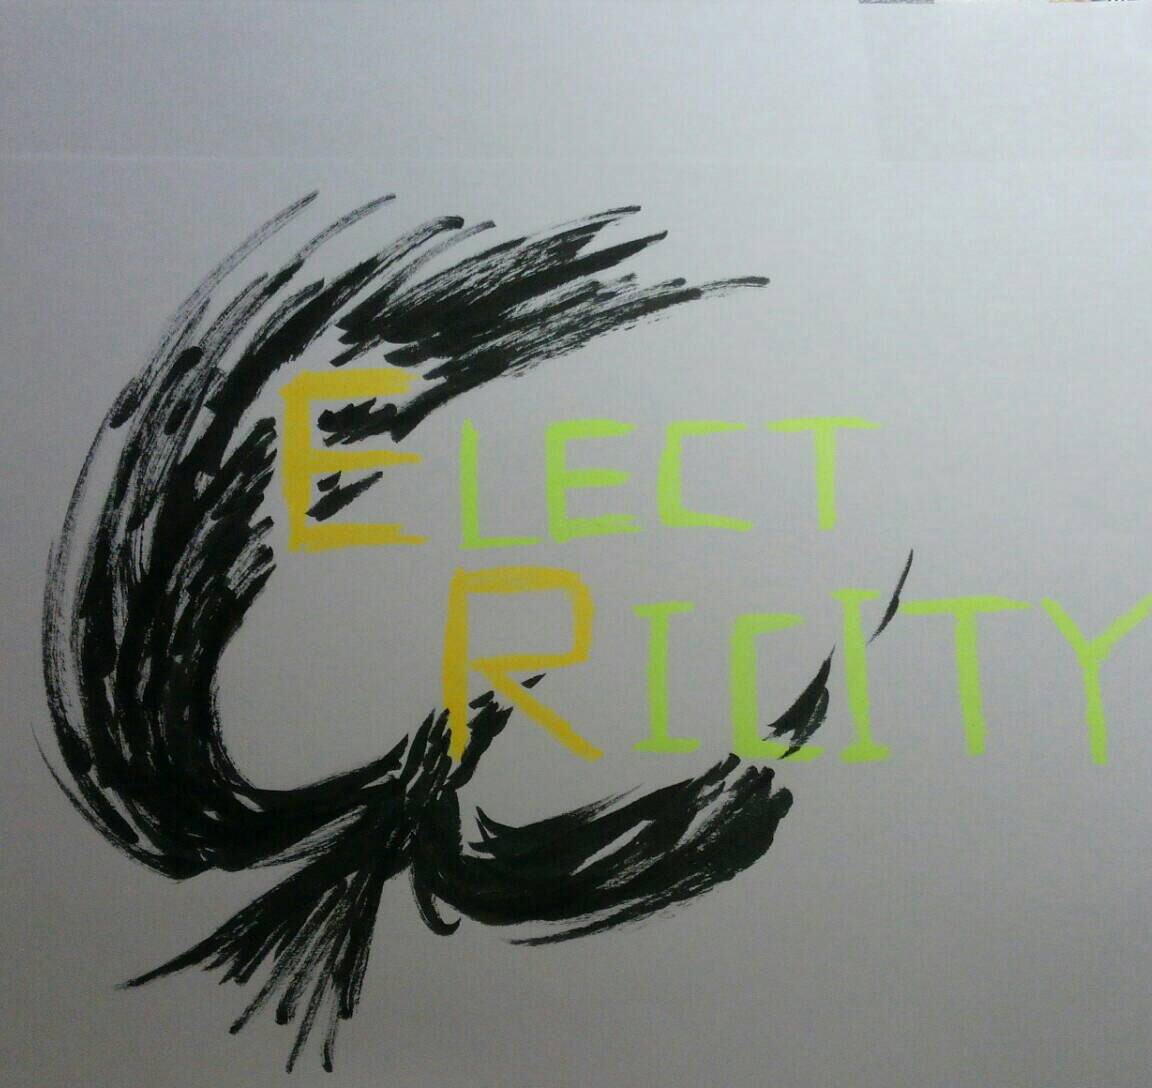 ELECT
RICITY